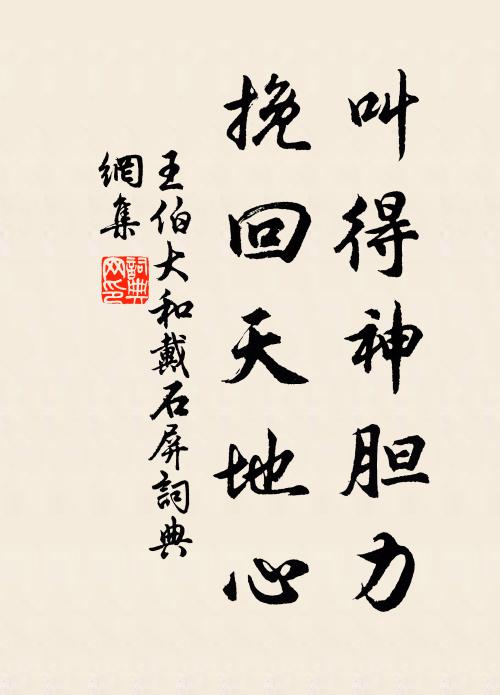 叫得神胆力
挽回天地心
王伯大和戴石屏詞典
網集
詞典網印